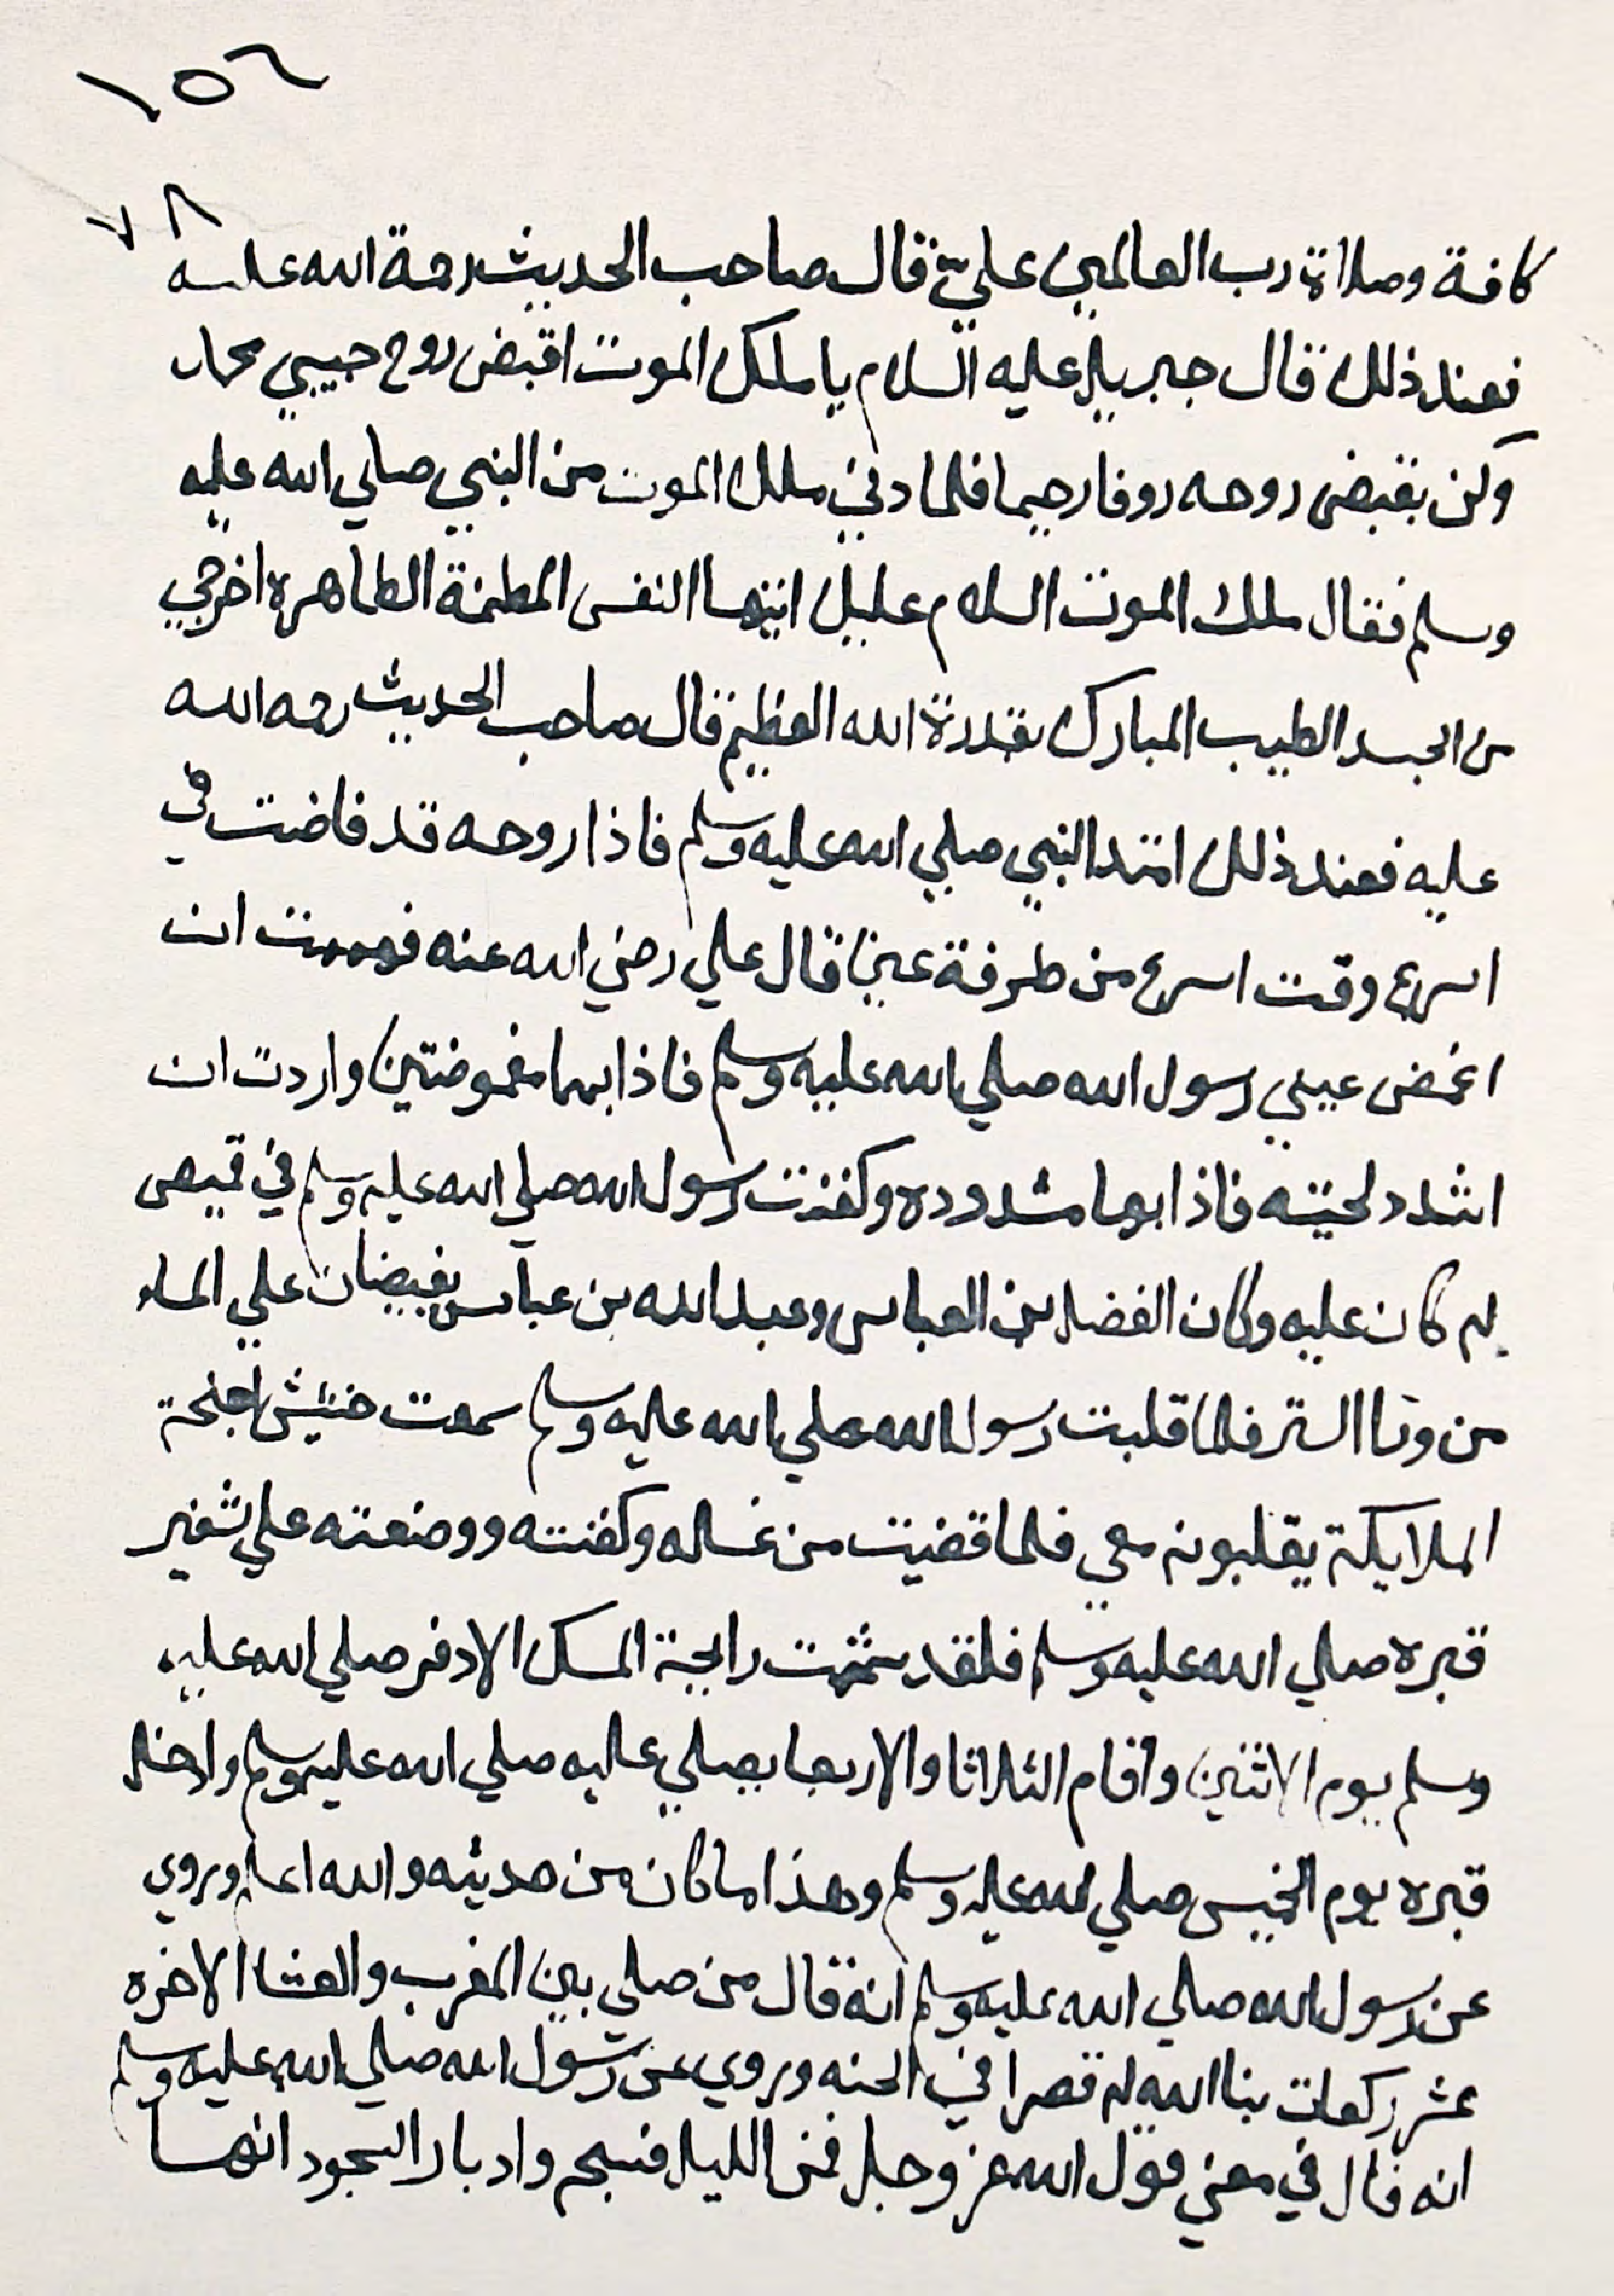 ١٥٦
٧٨
كافة وصلاة رب العالمين علي قال صاحب الحديث رحمة الله عليه
فعند ذلك قال جبريل عليه السلام يا ملك الموت اقبض روح حبيبي محمد
وكن بقبض روحه روفا رحيما فلما دني ملك الموت من النبي صلي الله عليه
وسلم فقال ملك الموت السلام عليك ايتها النفس المطمئنة الطاهرة اخرجي
من الجسد الطيب المبارك بقدرة الله العظيم قال صاحب الحديث رحمه الله
عليه فعند ذلك امتد النبي صلي الله عليه وسلم فاذا روحه قد فاضت في
اسرع وقت اسرع من طرفة عين قال علي رضي الله عنه فهممت ان
اغمض عيني رسول الله صلي الله عليه وسلم فاذا بهما مغموضتين واردت ان
اشدد لحيته فاذا بها مشدودة وكفنت رسول الله صلي الله عليه وسلم في قميص
له كان عليه وكان الفضل بن العباس وعبد الله بن عباس يفيضان علي الماء
من ورا الستر فلما قلبت رسول الله صلي الله عليه وسلم سمعت خشيش اجنحة
الملايكة يقلبونه معي فلما قضيت من غسله وكفنته ووضعته علي شفير
قبره صلي الله عليه وسلم فلقد شممت رايحة المسك الادفر صلي الله عليه
وسلم يوم الاثنين واقام الثلاثا والاربعا يصلي عليه صلي الله عليه وسلم وادخل
قبره يوم الخميس صلي الله عليه وسلم وهذا ما كان من حديثه والله اعلم وروي
عن رسول الله صلي الله عليه وسلم انه قال من صلي بين المغرب والعشا الاخره
عشر ركعات بنا الله له قصرا في الجنه وروي عن رسول الله صلي الله عليه وسلم
انه قال في معني قول الله عز وجل فمن الليل فسبحه وادبار السجود انهما